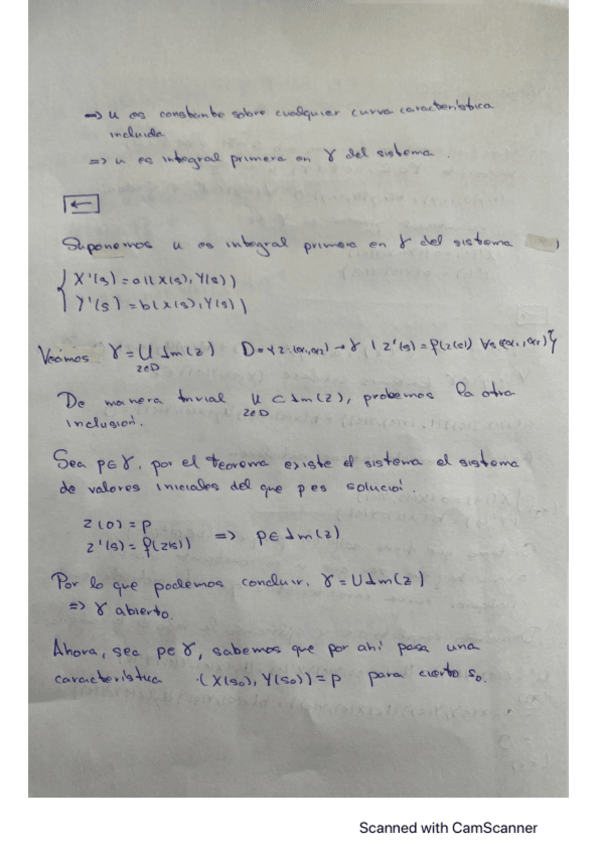 => u es constante sobre cualquier curva característica
incluida
=> u es integral primera en γ del sistema.
←
Suponemos u es integral primera en γ del sistema
{ X'(s) = a(X(s), Y(s))
Y'(s) = b(X(s), Y(s))
Veamos γ = U Im(z) D = {z: (α1, α2) → γ | z'(s) = f(z(s)) ∀s ∈ (α1, α2)}
z∈D
De manera trivial U ⊂ Im(z), probemos la otra
z∈D
inclusión.
Sea p∈γ, por el teorema existe el sistema el sistema
de valores iniciales del que p es solución.
z(0) = p
z'(s) = f(z(s)) => p ∈ Im(z)
Por lo que podemos concluir, γ = U Im(z)
=> γ abierto.
Ahora, sea p∈γ, sabemos que por ahí pasa una
característica (X(s₀), Y(s₀)) = p para cierto s₀.
Scanned with CamScanner